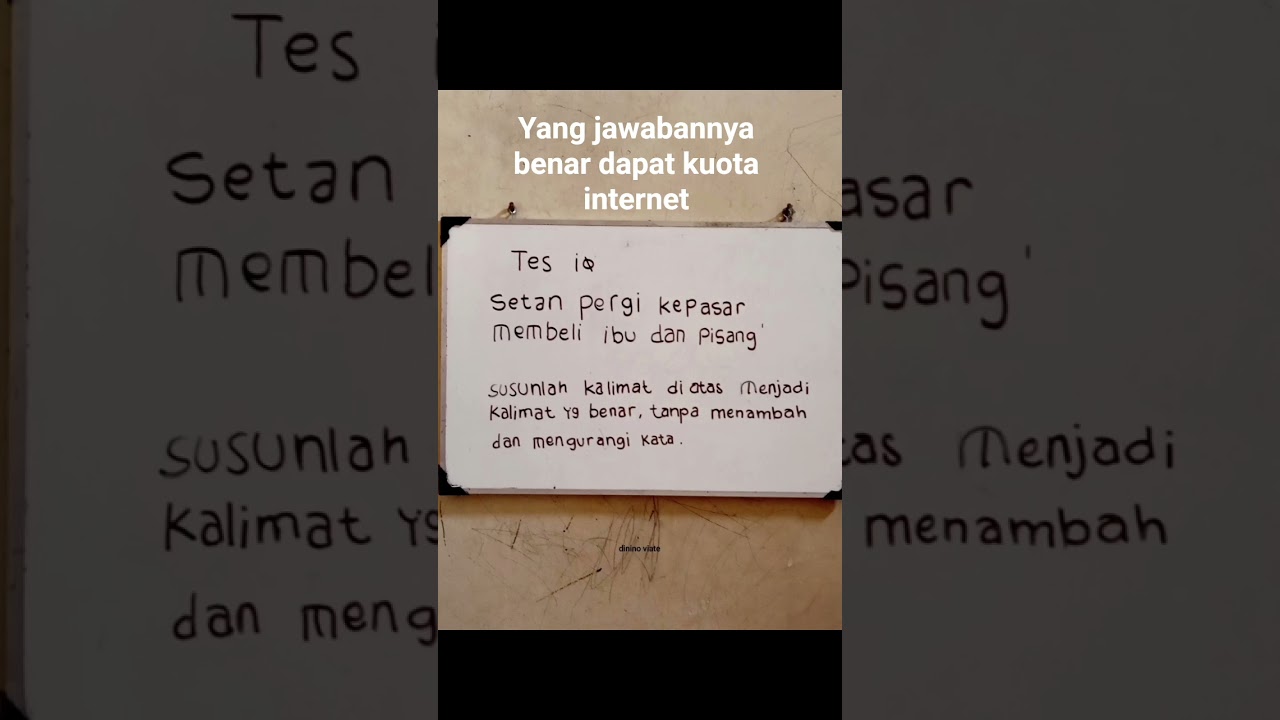 Yang jawabannya
benar dapat kuota
internet
Tes iQ
Setan pergi kepasar
membeli ibu dan pisang'
susunlah kalimat di atas menjadi
kalimat yg benar, tanpa menambah
dan mengurangi kata.
dinino viate